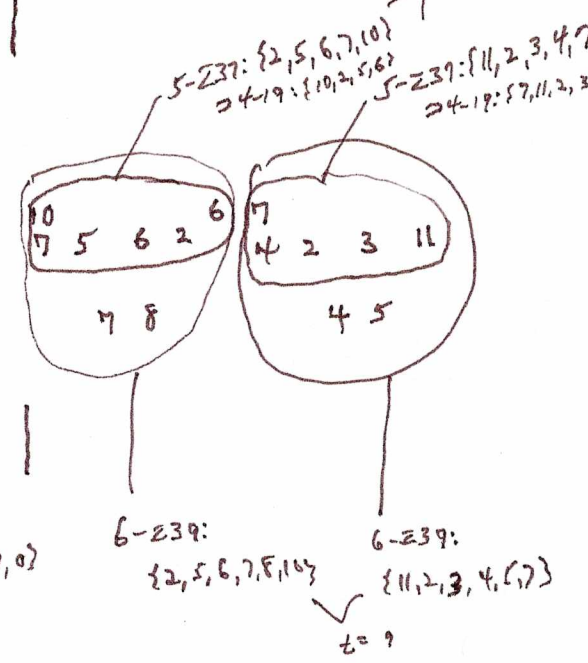 5-Z37: {2,5,6,7,10}
⊃4-19: {10,2,5,6}
5-Z37: {11,2,3,4,7
⊃4-19: {7,11,2,3
10 6
7 5 6 2
7 8
7
4 2 3 11
4 5
6-Z39:
{2,5,6,7,8,10}
6-Z39:
{11,2,3,4,5,7}
,0}
t= 9